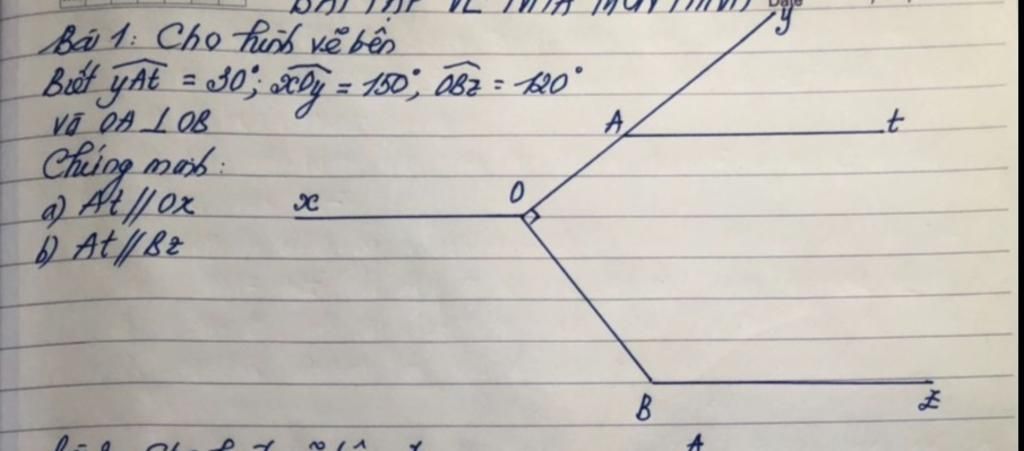 BÀI TẬP VẼ THÊM
Date
Bài 1: Cho hình vẽ bên
Biết yAt = 30°; xOy = 150°; OBz = 120°
và OA ⊥ OB
Chứng minh:
a) At // Ox
b) At // Bz
y
A t
x O
B z
A